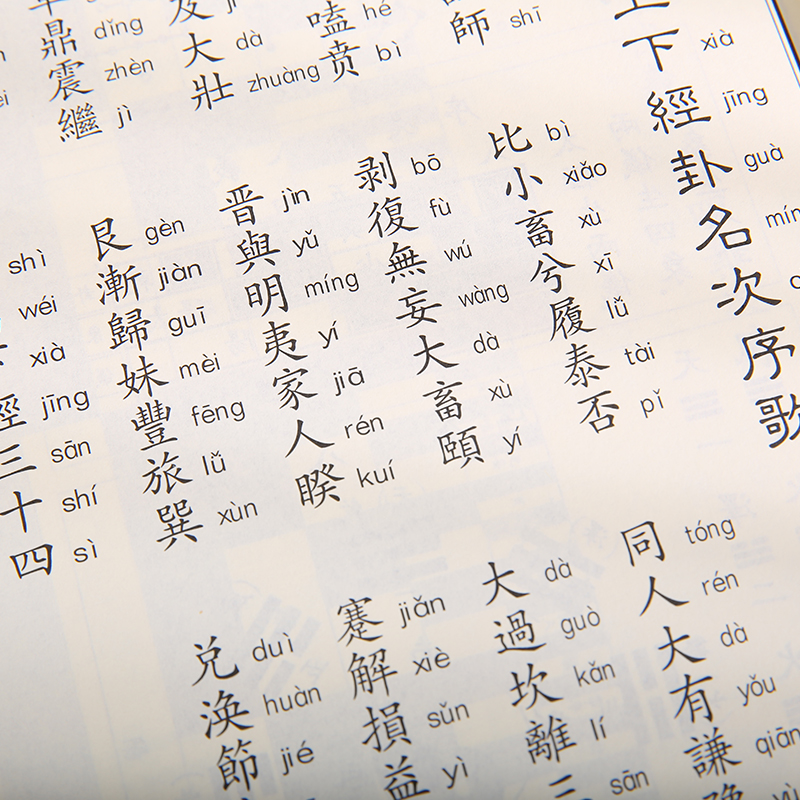 下 xià 經 jīng 卦 guà 名 次 序 歌
師 shī
嗑 hé 贲 bì
及 大 dà 壯 zhuàng
鼎 dǐng 震 zhèn 繼 jì
比 bì 小 xiǎo 畜 xù 兮 xī 履 lǚ 泰 tài 否 pǐ
剥 bō 復 fù 無 wú 妄 wàng 大 dà 畜 xù 頤 yí
晋 jìn 與 yǔ 明 míng 夷 yí 家 jiā 人 rén 睽 kuí
艮 gèn 漸 jiàn 歸 guī 妹 mèi 豐 fēng 旅 lǚ 巽 xùn
shì wéi xià 經 jīng 三 sān 十 shí 四 sì
同 tóng 人 rén 大 dà 有 yǒu 謙 qiān
大 dà 過 guò 坎 kǎn 離 lí 三 sān
蹇 jiǎn 解 xiè 損 sǔn 益 yì
兑 duì 渙 huàn 節 jié